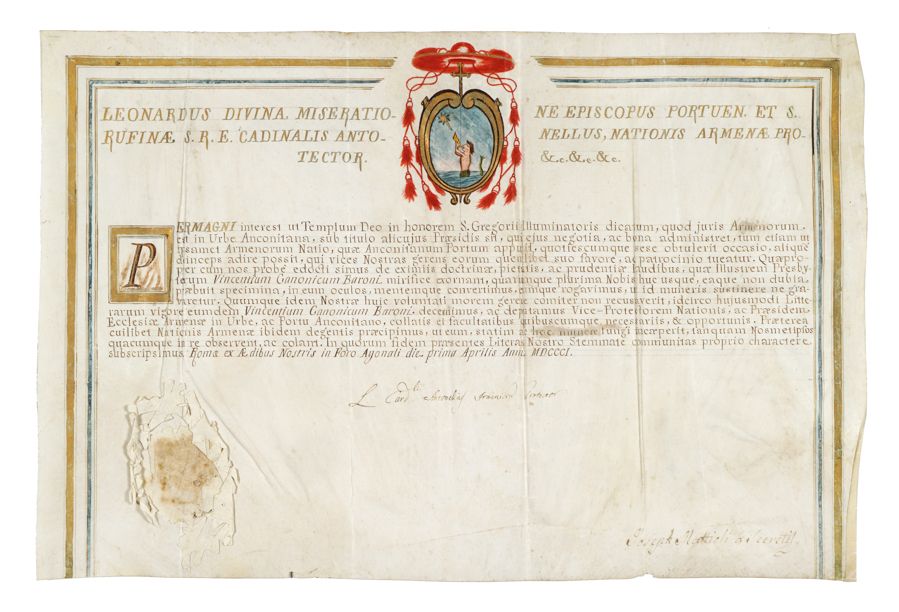 LEONARDUS DIVINA MISERATIO-NE EPISCOPUS PORTUEN. ET S.
RUFINÆ S. R. E. CADINALIS ANTO-NELLUS, NATIONIS ARMENÆ PRO-
TECTOR. &.c.&.c.&c.
PERMAGNI interest ut Templum Deo in honorem S. Gregorii Illuminatoris dicatum, quod juris Armenorum
est in Urbe Anconitana, sub titulo alicujus Præsidis sit, qui ejus negotia, ac bona administret, tum etiam ut
ipsamet Armenorum Natio, quæ Anconitanum Portum appulit, quotiescumque se obtulerit occasio, aliquem
deinceps adire possit, qui vices Nostras gerens eorum quemlibet suo favore, ac patrocinio tueatur. Quapro-
per cum nos probe edocti simus de eximiis doctrinæ, pietatis, ac prudentiæ laudibus, quæ Illustrem Presby-
terum Vincentium Canonicum Baroni mirifice exornant, quarumque plurima Nobis huc usque, eaque non dubia
præbuit specimina, in eum oculos, mentemque convertimus, eumque rogavimus, ut id muneris sustinere ne gra-
varetur. Quumque idem Nostræ huic voluntati morem gerere comiter non recusaverit, idcirco hujusmodi Litte-
rarum vigore eumdem Vincentium Canonicum Baroni decernimus, ac deputamus Vice-Protectorem Nationis, ac Præsidem
Ecclesiæ Armenæ in Urbe, ac Portu Anconitano, collatis ei facultatibus quibuscumque necessariis, & opportunis. Præterea
cuilibet Nationis Armenæ ibidem degentis præcipimus, ut eum, statim ac hoc munere fungi incæperit, tanquam Nosmetipsos
quacumque in re observent, ac colant. In quorum fidem præsentes Literas Nostro Stemmate communitas proprio charactere
subscripsimus Romæ ex Ædibus Nostris in Foro Agonali die prima Aprilis Ann. MDCCCI.
L Card. Antonellus Armenorum Protector
Joseph Mattioli a Secretis